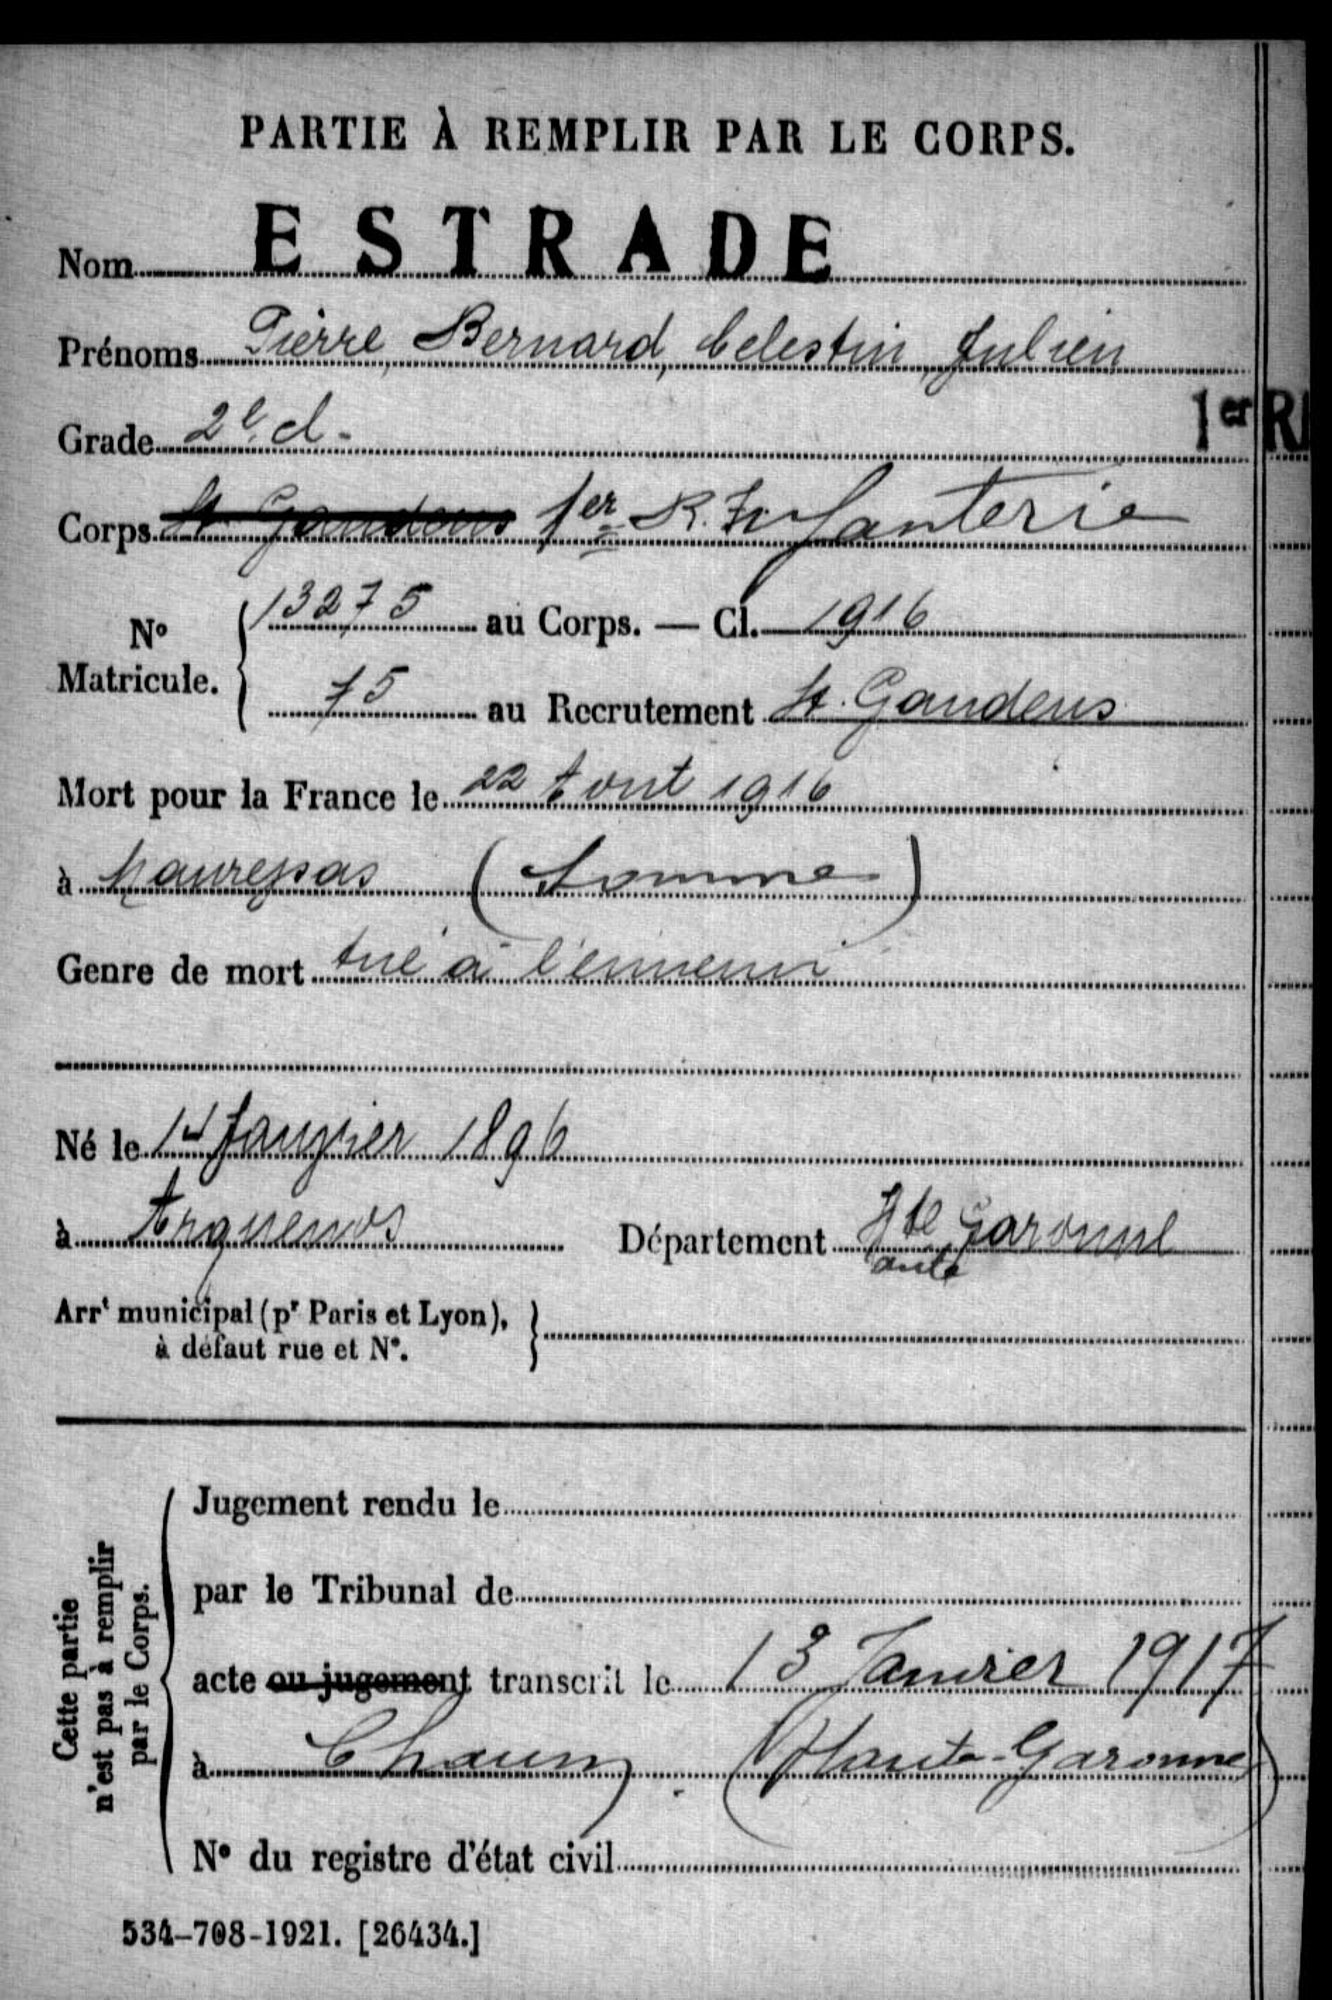 PARTIE À REMPLIR PAR LE CORPS.
Nom ESTRADE
Prénoms Pierre, Bernard, Celestin, Julien
Grade 2e cl.
1er RI
Corps St Gaudens 1er R. Infanterie
No Matricule. 13275 au Corps. — Cl. 1916
75 au Recrutement St. Gaudens
Mort pour la France le 22 Aout 1916
à Maurepas (Somme)
Genre de mort tué à l'ennemi
Né le 14 Janvier 1896
à Arguenos Département Hte Garonne
aute
Arrt municipal (pr Paris et Lyon),
à défaut rue et N°.
Cette partie
n'est pas à remplir
par le Corps.
Jugement rendu le
par le Tribunal de
acte ou jugement transcrit le 13 Janvier 1917
à Chaum. (Haute-Garonne)
N° du registre d'état civil
534-708-1921. [26434.]